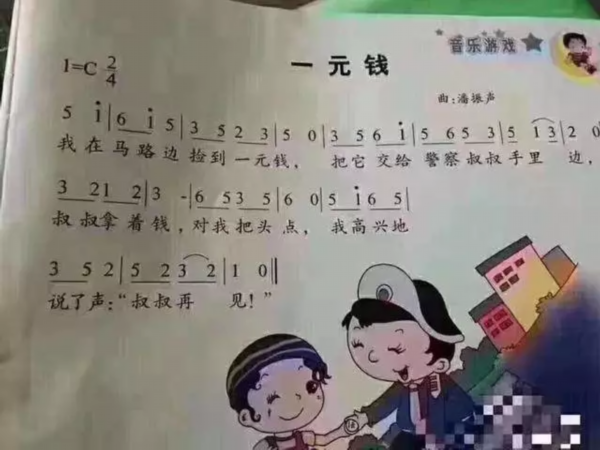 音乐游戏
1=C 2/4
一元钱
曲:潘振声
5 i | 6 i 5 | 3 5 2 3 | 5 0 | 3 5 6 i | 5 6 5 3 | 5 1 3 | 2 0
我在马路边捡到一元钱， 把它交给警察叔叔手里边，
3 2 1 2 | 3 - | 6 5 3 5 | 6 0 | 5 i 6 5 |
叔叔拿着钱，对我把头点， 我高兴地
3 5 2 | 5 2 3 2 | 1 0 ‖
说了声:“叔叔再见！”